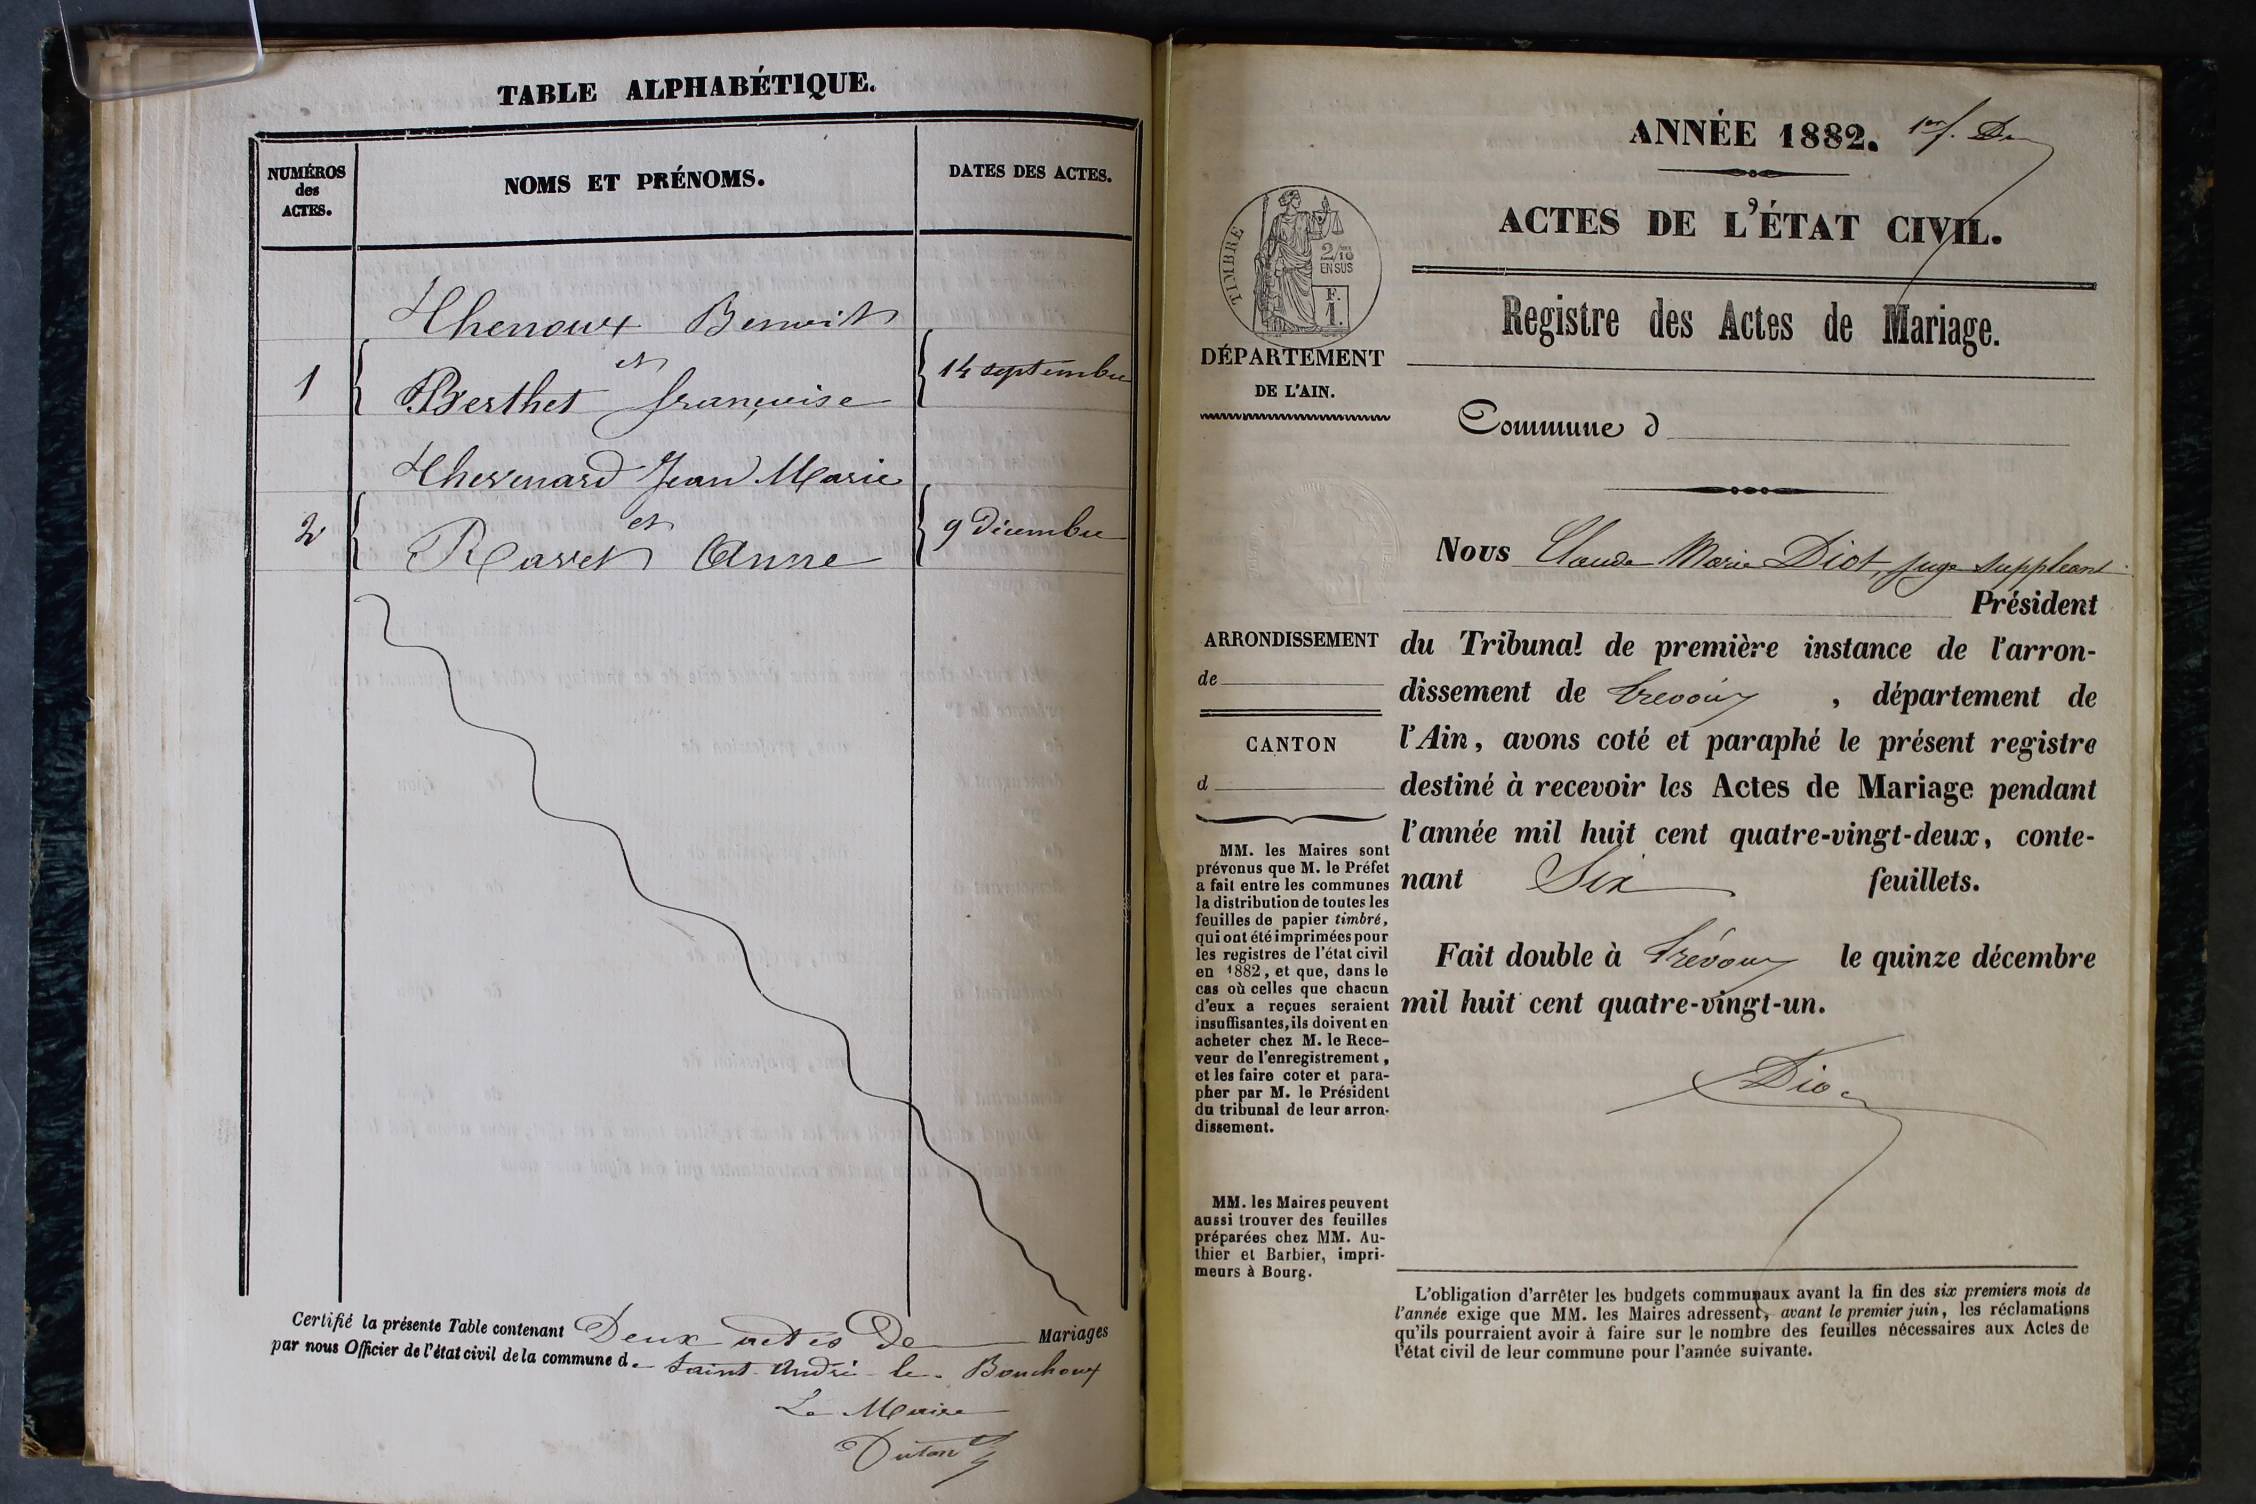 TABLE ALPHABÉTIQUE.
NUMÉROS
des
ACTES.
NOMS ET PRÉNOMS.
DATES DES ACTES.
Thenoux Benoit
et
1
Berthet françoise
14 septembre
Thevenard Jean Marie
et
2
Ravet Anne
9 Décembre
Certifié la présente Table contenant Deux actes De Mariages
par nous Officier de l'état civil de la commune de Saint-André-le-Bouchoux
Le Maire
ANNÉE 1882.
1er f.
ACTES DE L'ÉTAT CIVIL.
TIMBRE
2/10
EN SUS
F.
1.
Registre des Actes de Mariage.
DÉPARTEMENT
DE L'AIN.
Commune d
Nous Claude Marie Diot, juge suppleant
Président
du Tribunal de première instance de l'arron-
dissement de Trévoux, département de
l'Ain, avons coté et paraphé le présent registre
destiné à recevoir les Actes de Mariage pendant
l'année mil huit cent quatre-vingt-deux, conte-
nant Six feuillets.
Fait double à Trévoux le quinze décembre
mil huit cent quatre-vingt-un.
Diot
ARRONDISSEMENT
de
CANTON
d
MM. les Maires sont
prévenus que M. le Préfet
a fait entre les communes
la distribution de toutes les
feuilles de papier timbré,
qui ont été imprimées pour
les registres de l'état civil
en 1882, et que, dans le
cas où celles que chacun
d'eux a reçues seraient
insuffisantes, ils doivent en
acheter chez M. le Rece-
veur de l'enregistrement,
et les faire coter et para-
pher par M. le Président
du tribunal de leur arron-
dissement.
MM. les Maires peuvent
aussi trouver des feuilles
préparées chez MM. Au-
thier et Barbier, impri-
meurs à Bourg.
L'obligation d'arrêter les budgets communaux avant la fin des six premiers mois de
l'année exige que MM. les Maires adressent, avant le premier juin, les réclamations
qu'ils pourraient avoir à faire sur le nombre des feuilles nécessaires aux Actes de
l'état civil de leur commune pour l'année suivante.